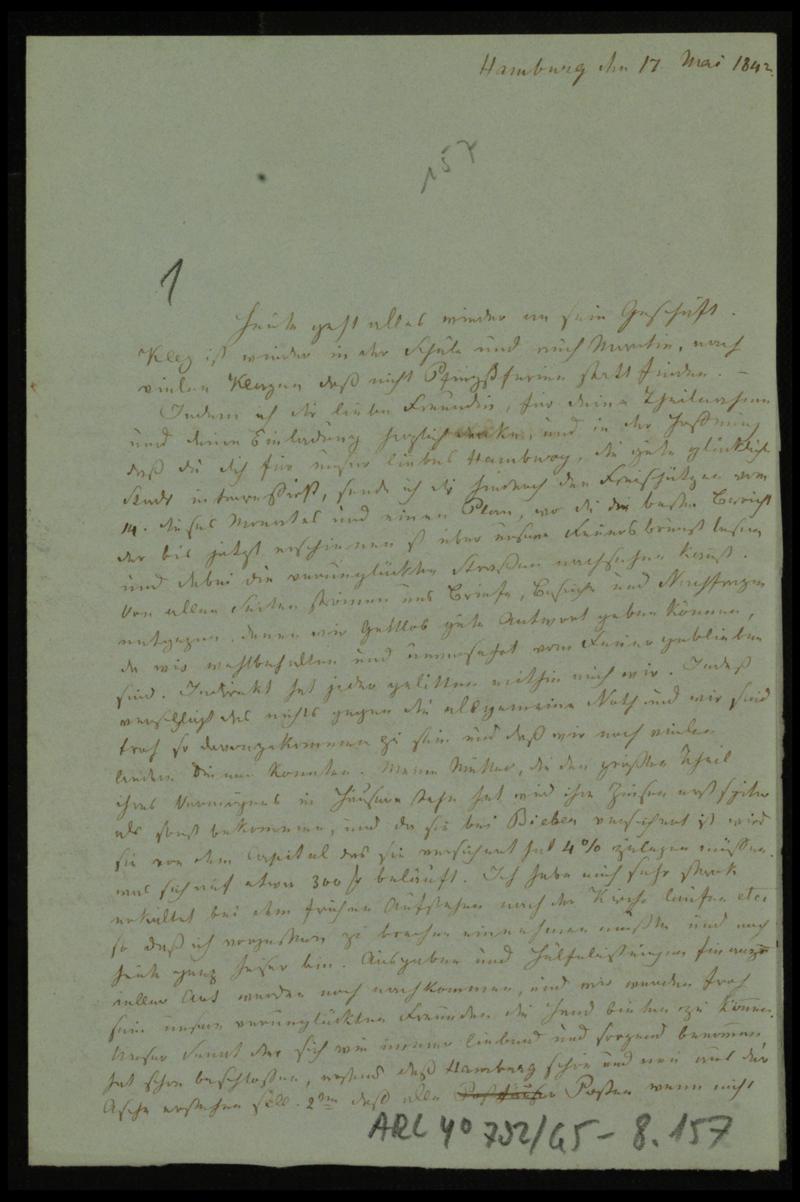 Hamburg den 17 Mai 1842.
157
1
Heute geht alles wieder an sein Geschäft.
ist wieder in der Schule und auch Martin, nach
vielen Klagen daß nicht Pfingstferien statt finden. –
Indem ich dir liebe Freundin, für deine Theilnahme
und deine Einladung herzlich danke, und in der Hoffnung
daß du dich für unser liebes Hamburg, die gute glückliche
Stadt interressirst, sende ich dir hiernach den Freischützen vom
14. dieses Monates und einen Plan, wo du den besten Bericht
der bis jetzt erschienen ist über unsere Feuersbrunst lesen
und dabei die verunglückten Straßen nachsehen kannst.
Von allen Seiten strömen uns Briefe, Besuche und Nachfragen
entgegen, denen wir Gottlob gute Antwort geben können,
da wir wohlbehalten und unversehrt vom Feuer geblieben
sind. Indirekt hat jeder gelitten mithin auch wir. Indeß
verschlägt das nichts gegen die allgemeine Noth und wir sind
froh so davongekommen zu sein und daß wir noch vielen
andern dienen konnten. Meine Mutter, die den größten Theil
ihres Vermögens in Häusern stehn hat wird ihre Zinsen erst später
als sonst bekommen, und da sie bei Bieber versichert ist wird
sie von dem Capital das sie versichert hat 4% zulegen müssen.
was sich auf etwa 300 beläuft. Ich habe mich sehr stark
erkältet bei dem frühen Aufstehen nach der Kirche laufen etc
so daß ich vorgestern zu brechen einnehmen mußte und noch
heute ganz heiser bin. Ausgaben und Hülfeleistungen
aller Art werden noch nachkommen, und wir werden froh
sein unsern verunglückten Freunden die Hand bieten zu können.
Unser Senat der sich wie immer liebend und sorgend benommen
hat schon beschlossen, erstens daß Hamburg schön und neu aus der
Asche erstehen soll. 2tens daß alle Posten wenn nicht
ARC 4° 792/G5 – 8.157